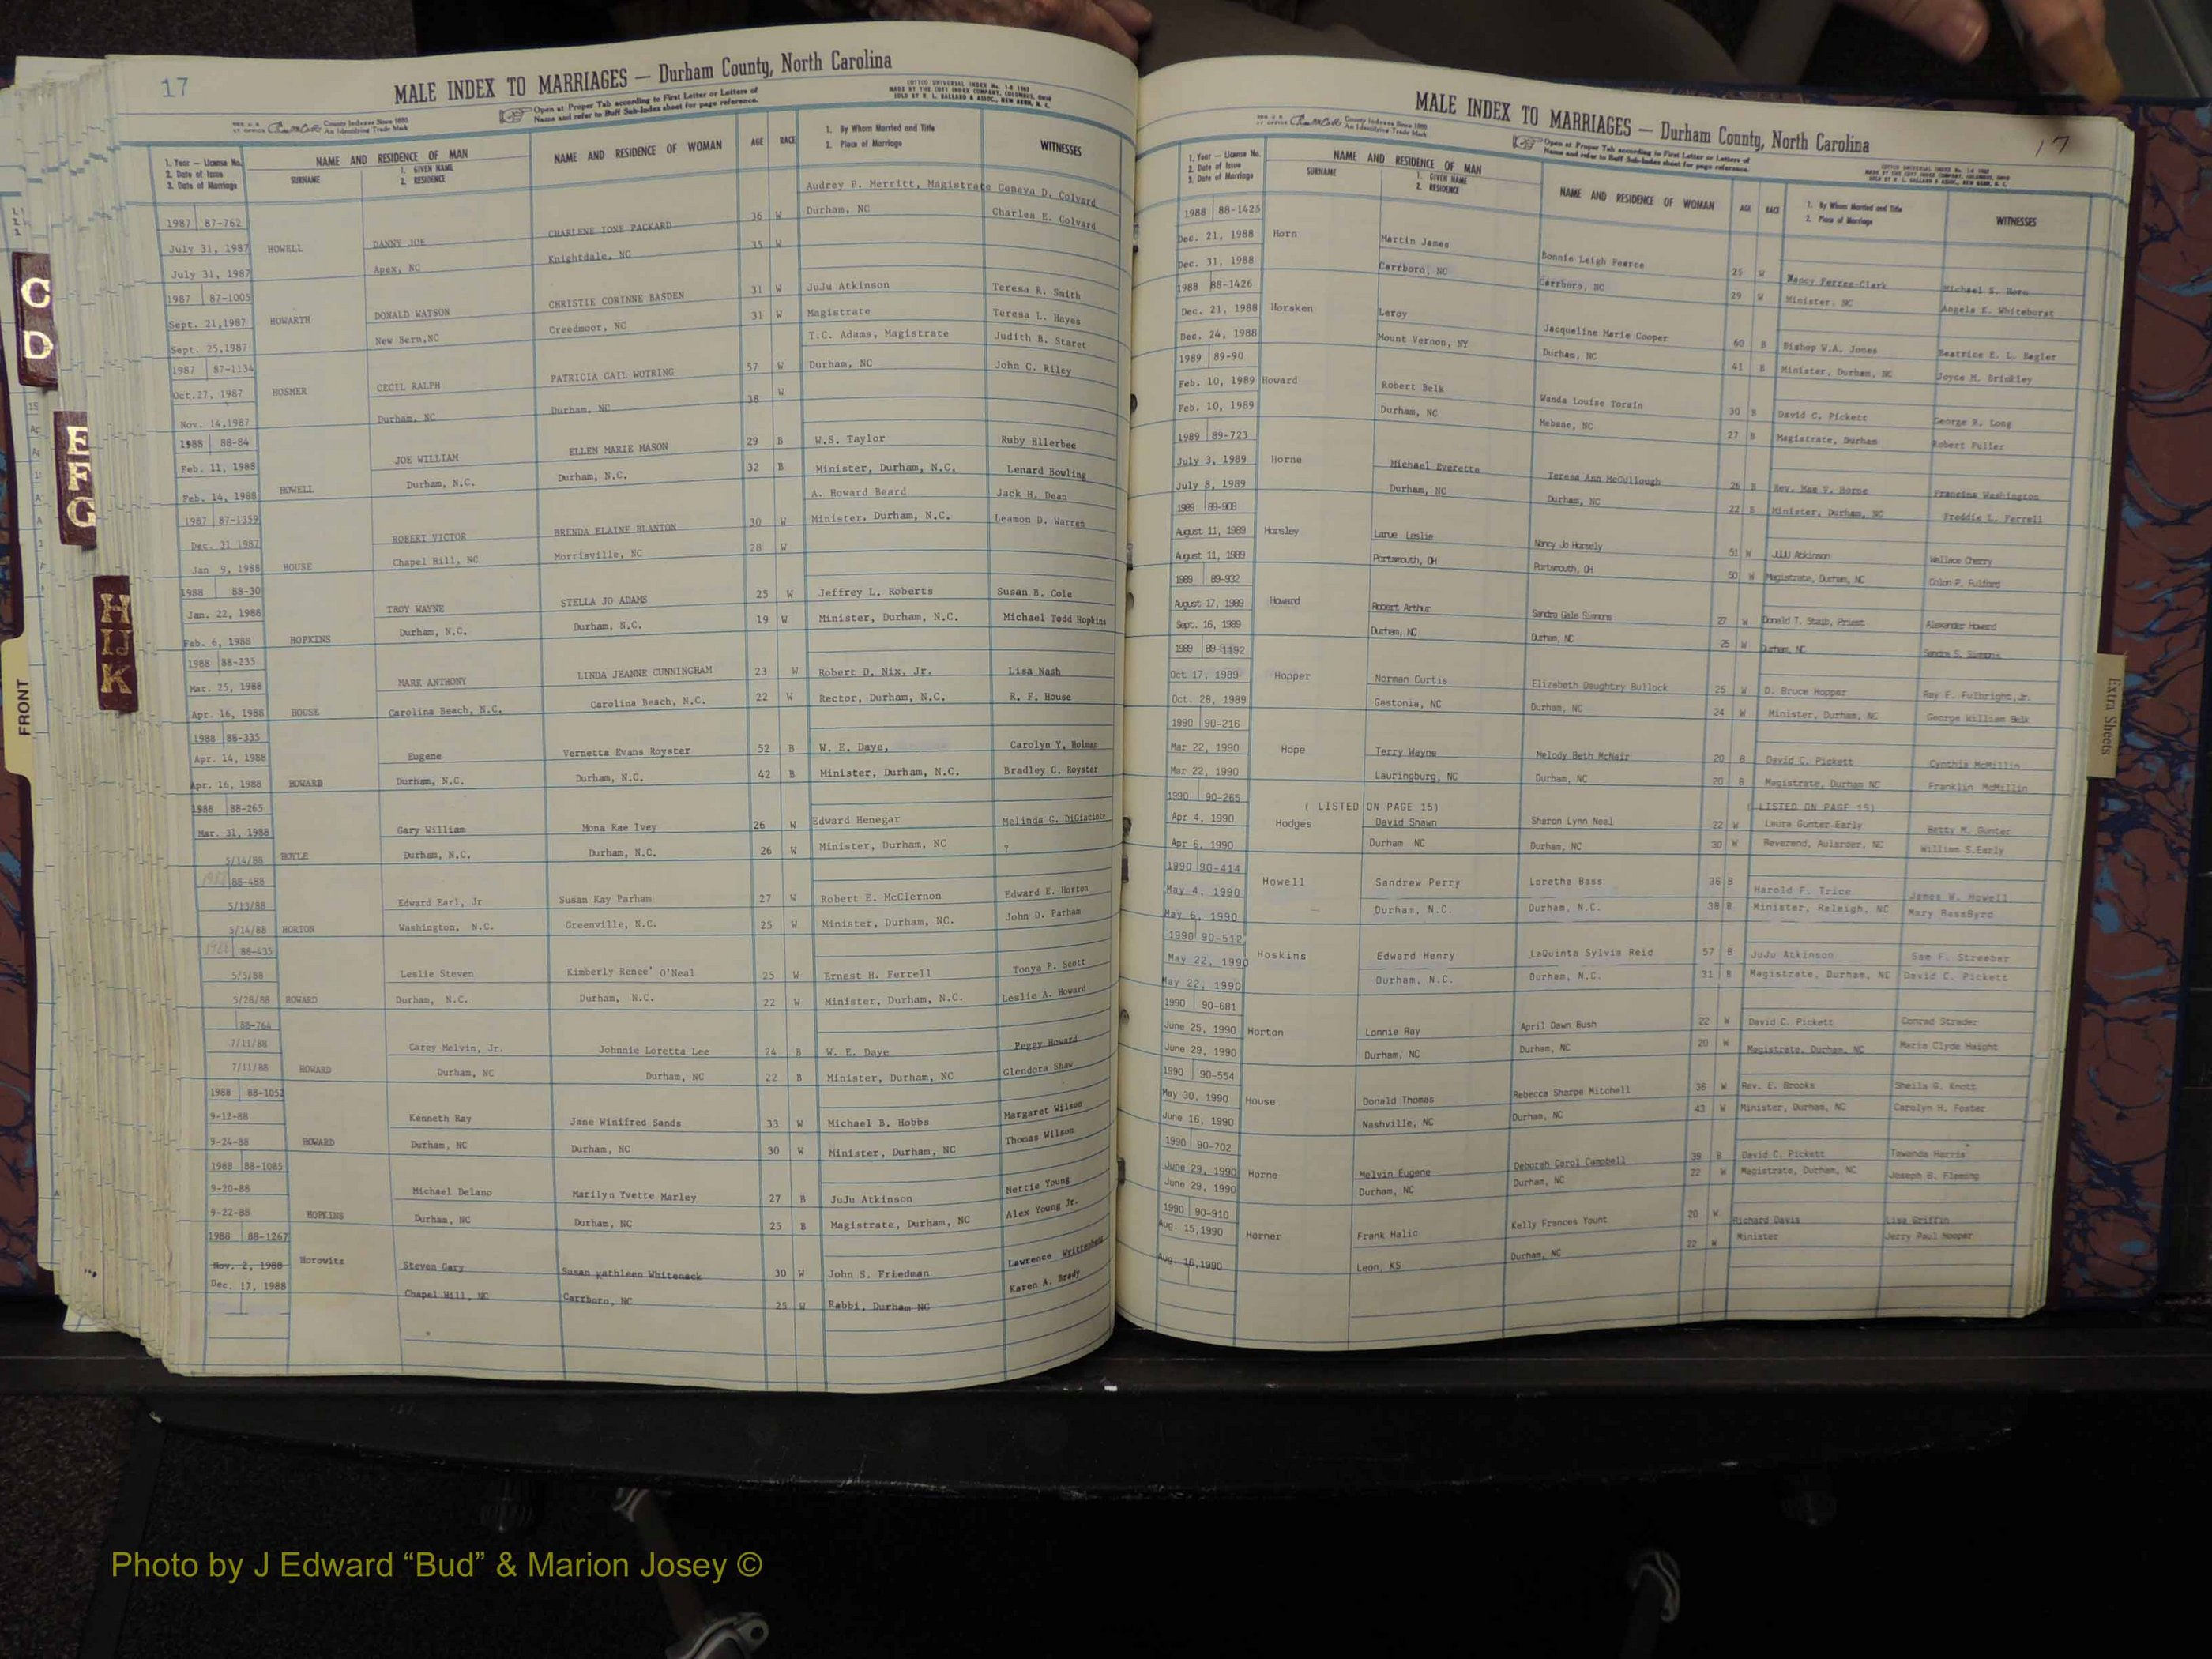 17
MALE INDEX TO MARRIAGES — Durham County, North Carolina
Open at Proper Tab according to First Letter or Letters of
Name and refer to Buff Sub-Index sheet for page reference.
County Indexes Since 1888
An Identifying Trade Mark
1. Year — License No.
2. Date of Issue
3. Date of Marriage
NAME AND RESIDENCE OF MAN
SURNAME
1. GIVEN NAME
2. RESIDENCE
NAME AND RESIDENCE OF WOMAN
AGE
RACE
1. By Whom Married and Title
2. Place of Marriage
WITNESSES
1987 87-762 Audrey P. Merritt, Magistrate Geneva D. Colvard
July 31, 1987 HOWELL DANNY JOE CHARLENE IONE PACKARD 36 W Durham, NC Charles E. Colvard
July 31, 1987 Apex, NC Knightdale, NC 35 W
1987 87-1005
Sept. 21,1987 HOWARTH DONALD WATSON CHRISTIE CORINNE BASDEN 31 W JuJu Atkinson Teresa R. Smith
Sept. 25,1987 New Bern,NC Creedmoor, NC 31 W Magistrate Teresa L. Hayes
1987 87-1134 T.C. Adams, Magistrate Judith B. Staret
Oct.27, 1987 HOSMER CECIL RALPH PATRICIA GAIL WOTRING 57 W Durham, NC John C. Riley
Nov. 14,1987 Durham, NC Durham, NC 38 W
1988 88-84
Feb. 11, 1988 JOE WILLIAM ELLEN MARIE MASON 29 B W.S. Taylor Ruby Ellerbee
Feb. 14, 1988 HOWELL Durham, N.C. Durham, N.C. 32 B Minister, Durham, N.C. Lenard Bowling
1987 87-1359 A. Howard Beard Jack H. Dean
Dec. 31 1987 ROBERT VICTOR BRENDA ELAINE BLANTON 30 W Minister, Durham, N.C. Leamon D. Warren
Jan 9, 1988 HOUSE Chapel Hill, NC Morrisville, NC 28 W
1988 88-30
Jan. 22, 1988 TROY WAYNE STELLA JO ADAMS 25 W Jeffrey L. Roberts Susan B. Cole
Feb. 6, 1988 HOPKINS Durham, N.C. Durham, N.C. 19 W Minister, Durham, N.C. Michael Todd Hopkins
1988 88-235
Mar. 25, 1988 MARK ANTHONY LINDA JEANNE CUNNINGHAM 23 W Robert D. Nix, Jr. Lisa Nash
Apr. 16, 1988 HOUSE Carolina Beach, N.C. Carolina Beach, N.C. 22 W Rector, Durham, N.C. R. F. House
1988 88-335
Apr. 14, 1988 Eugene Vernetta Evans Royster 52 B W. E. Daye, Carolyn Y. Holman
Apr. 16, 1988 HOWARD Durham, N.C. Durham, N.C. 42 B Minister, Durham, N.C. Bradley C. Royster
1988 88-265
Mar. 31, 1988 Gary William Mona Rae Ivey 26 W Edward Henegar Melinda G.
5/14/88 HOYLE Durham, N.C. Durham, N.C. 26 W Minister, Durham, NC ?
1988 88-488
5/13/88 Edward Earl, Jr Susan Kay Parham 27 W Robert E. McClernon Edward E. Horton
5/14/88 HORTON Washington, N.C. Greenville, N.C. 25 W Minister, Durham, NC. John D. Parham
1988 88-435
5/5/88 Leslie Steven Kimberly Renee' O'Neal 25 W Ernest H. Ferrell Tonya P. Scott
5/28/88 HOWARD Durham, N.C. Durham, N.C. 22 W Minister, Durham, N.C. Leslie A. Howard
88-764
7/11/88 Carey Melvin, Jr. Johnnie Loretta Lee 24 B W. E. Daye Peggy Howard
7/11/88 HOWARD Durham, NC Durham, NC 22 B Minister, Durham, NC Glendora Shaw
1988 88-1052
9-12-88 Kenneth Ray Jane Winifred Sands 33 W Michael B. Hobbs Margaret Wilson
9-24-88 HOWARD Durham, NC Durham, NC 30 W Minister, Durham, NC Thomas Wilson
1988 88-1085
9-20-88 Michael Delano Marilyn Yvette Marley 27 B JuJu Atkinson Nettie Young
9-22-88 HOPKINS Durham, NC Durham, NC 25 B Magistrate, Durham, NC Alex Young Jr.
1988 88-1267
Nov. 2, 1988 Horowitz Steven Gary Susan Kathleen Whitenack 30 W John S. Friedman Lawrence
Dec. 17, 1988 Chapel Hill, NC Carrboro, NC 25 W Rabbi, Durham NC Karen A. Brady
MALE INDEX TO MARRIAGES — Durham County, North Carolina
17
Open at Proper Tab according to First Letter or Letters of
Name and refer to Buff Sub-Index sheet for page reference.
County Indexes Since 1888
An Identifying Trade Mark
1. Year — License No.
2. Date of Issue
3. Date of Marriage
NAME AND RESIDENCE OF MAN
SURNAME
1. GIVEN NAME
2. RESIDENCE
NAME AND RESIDENCE OF WOMAN
AGE
RACE
1. By Whom Married and Title
2. Place of Marriage
WITNESSES
1988 88-1425
Dec. 21, 1988 Horn Martin James Bonnie Leigh Pearce 25 W Nancy Ferree-Clark Michael S. Horn
Dec. 31, 1988 Carrboro, NC Carrboro, NC 29 W Minister, NC Angela K. Whitehurst
1988 88-1426
Dec. 21, 1988 Horaken Leroy Jacqueline Marie Cooper 60 B Bishop W.A. Jones Beatrice E. L. Hagler
Dec. 24, 1988 Mount Vernon, NY Durham, NC 41 B Minister, Durham, NC Joyce M. Brinkley
1989 89-90
Feb. 10, 1989 Howard Robert Belk Wanda Louise Torain 30 B David C. Pickett George R. Long
Feb. 10, 1989 Durham, NC Mebane, NC 27 B Magistrate, Durham Robert Fuller
1989 89-723
July 3, 1989 Horne Michael Everette Teresa Ann McCullough 26 B Rev. Mae V. Horne Francina Washington
July 8, 1989 Durham, NC Durham, NC 22 B Minister, Durham, NC Freddie L. Ferrell
1989 89-908
August 11, 1989 Horsley Larue Leslie Nancy Jo Horsely 51 W JuJu Atkinson Wallace Cherry
August 11, 1989 Portsmouth, OH Portsmouth, OH 50 W Magistrate, Durham, NC Colon P. Fulford
1989 89-932
August 17, 1989 Howard Robert Arthur Sandra Gale Simmons 27 W Donald T. Shaib, Priest Alexander Howard
Sept. 16, 1989 Durham, NC Durham, NC 25 W Durham, NC Sandra S. Simmons
1989 89-1192
Oct 17, 1989 Hopper Norman Curtis Elizabeth Daughtry Bullock 25 W D. Bruce Hopper Ray E. Fulbright,Jr.
Oct. 28, 1989 Gastonia, NC Durham, NC 24 W Minister, Durham, NC George William Belk
1990 90-216
Mar 22, 1990 Hope Terry Wayne Melody Beth McNair 20 B David C. Pickett Cynthia McMillin
Mar 22, 1990 Lauringburg, NC Durham, NC 20 B Magistrate, Durham NC Franklin McMillin
1990 90-265 ( LISTED ON PAGE 15) ( LISTED ON PAGE 15)
Apr 4, 1990 Hodges David Shawn Sharon Lynn Neal 22 W Laura Gunter Early Betty M. Gunter
Apr 6, 1990 Durham NC Durham, NC 30 W Reverend, Aularder, NC William S.Early
1990 90-414
May 4, 1990 Howell Sandrew Perry Loretha Bass 36 B Harold F. Trice James W. Howell
May 6, 1990 Durham, N.C. Durham, N.C. 38 B Minister, Raleigh, NC Mary BassByrd
1990 90-512
May 22, 1990 Hoskins Edward Henry LaQuinta Sylvia Reid 57 B JuJu Atkinson Sam F. Streeber
May 22, 1990 Durham, N.C. Durham, N.C. 31 B Magistrate, Durham, NC David C. Pickett
1990 90-681
June 25, 1990 Horton Lonnie Ray April Dawn Bush 22 W David C. Pickett Conrad Strader
June 29, 1990 Durham, NC Durham, NC 20 W Magistrate, Durham, NC Maria Clyde Haight
1990 90-554
May 30, 1990 House Donald Thomas Rebecca Sharpe Mitchell 36 W Rev. E. Brooks Sheila G. Knott
June 16, 1990 Nashville, NC Durham, NC 43 W Minister, Durham, NC Carolyn H. Foster
1990 90-702
June 29, 1990 Horne Melvin Eugene Deborah Carol Campbell 39 B David C. Pickett Tawanda Harris
June 29, 1990 Durham, NC Durham, NC 22 W Magistrate, Durham, NC Joseph B. Fleming
1990 90-910
Aug. 15,1990 Horner Frank Halic Kelly Frances Yount 20 W Richard Davis Lisa Griffin
Aug. 16,1990 Leon, KS Durham, NC 22 W Minister Jerry Paul Hooper
C
D
E
F
G
H
IJ
K
FRONT
Extra Sheets
Photo by J Edward “Bud” & Marion Josey ©